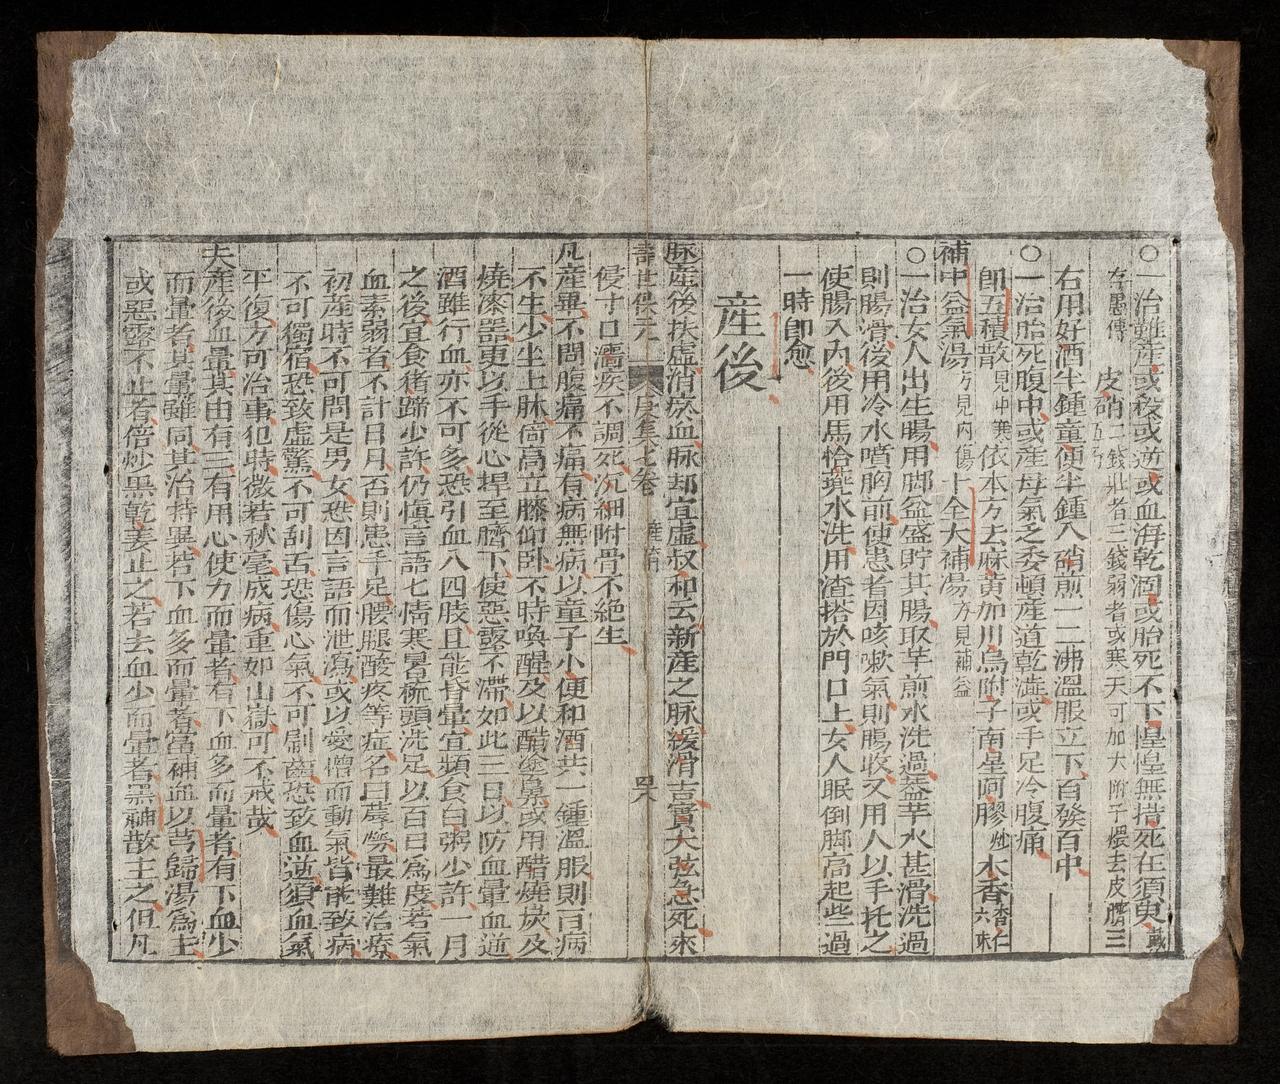 ○一治難產或殺或逆或血海乾涸或胎死不下惶惶無措死在須臾戴
存愚傳 皮硝二錢壯者三錢弱者或寒天可加大附子煨去皮臍三五分
右用好酒半鍾童便半鍾入硝煎一二沸溫服立下百發百中
○一治胎死腹中或產母氣之委頓產道乾澁或手足冷腹痛
即五積散見中寒依本方去麻黃加川烏附子南星阿膠炒木香杏仁六味
補中益氣湯方見內傷 十全大補湯方見補益
○一治女人出生腸用脚盆盛貯其腸取芋煎水洗過蓋芋水甚滑洗過
則腸滑後用冷水噴胸前使患者因咳嗽氣則腸收又用人以手托之
使腸入內後用馬恰甕水洗用渣搭於門口上女人眠倒脚高起些過
一時即愈
產後
脉產後扶虛消瘀血脉却宜虛叔和云新產之脉緩滑吉實大弦急死來
壽世保元 庚集七卷 產後 四八
侵寸口濇疾不調死沉細附骨不絕生
凡產畢不問腹痛不痛有病無病以童子小便和酒共一鍾溫服則百病
不生少坐上牀倚高立膝仰卧不時喚醒及以醋塗鼻或用醋燒炭及
燒漆器更以手從心桿至臍下使惡露不滯如此三日以防血暈血逆
酒雖行血亦不可多恐引血入四肢且能昏暈宜頻食白粥少許一月
之後宜食猪蹄少許仍慎言語七情寒暑梳頭洗足以百日為度若氣
血素弱者不計日月否則患手足腰腿酸疼等症名曰蓐勞最難治療
初產時不可問是男女恐因言語而泄瀉或以愛憎而動氣皆能致病
不可獨宿恐致虛驚不可刮舌恐傷心氣不可刷齒恐致血逆須血氣
平復方可治事犯時微若秋毫成病重如山嶽可不戒哉
夫產後血暈其由有三有用心使力而暈者有下血多而暈者有下血少
而暈者其暈雖同其治特異若下血多而暈者當補血以芎歸湯為主
或惡露不止者倍炒黑乾姜止之若去血少而暈者黑神散主之但凡